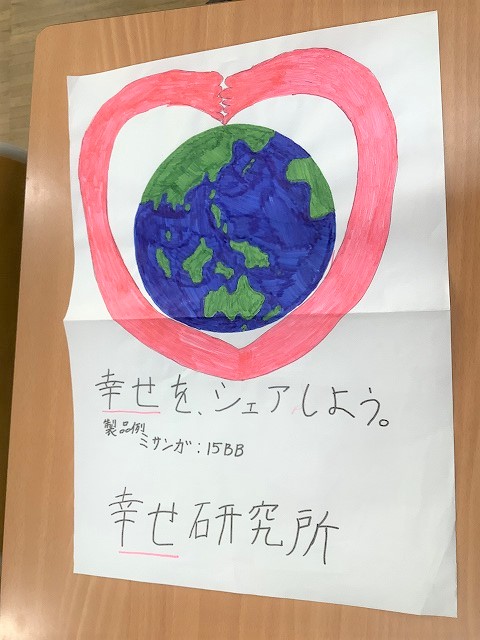 幸せを、シェアしよう。
製品例
ミサンガ：15BB
幸せ研究所